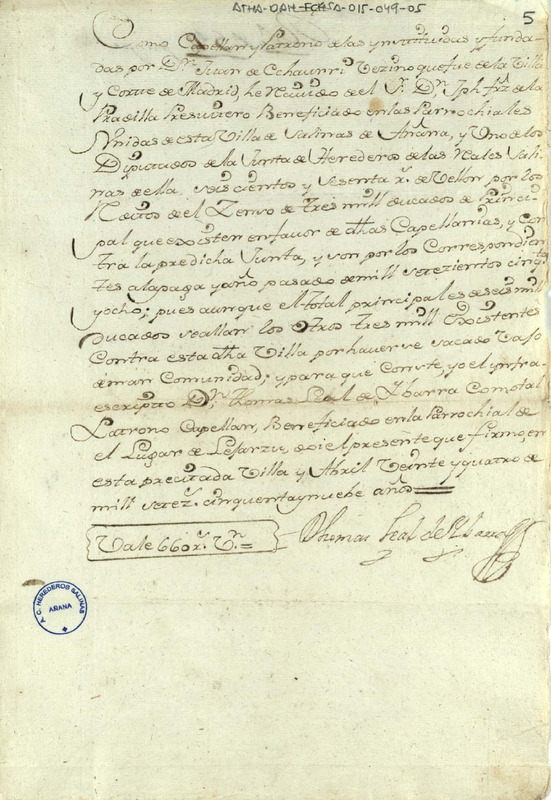 ATHA-DAH-FCASA-015-049-05
5
Como Capellan y Patrono de las ynstituidas y funda-
das por Dn. Juan de Echaurri Vezino que fue de la Villa
y Corte de Madrid, he Recivido de el Sr. Dn. Jph frz de la
Pradilla Presvitero Beneficiado en las Parrochiales
Vnidas de esta Villa de Salinas de Añana, y Vno de los
Diputados de la Junta de Herederos de las Reales Sali-
nas de ella, seis cientos y sesenta rs. de Vellon por los
Reditos de el Zenso de tres mill ducados de Princi-
pal que existen en favor de dhas Capellanias, y Con-
tra la predicha Junta, y son por los Correspondien-
tes a la paga y año pasado de mill setezientos cinqta
y ocho; pues aunque el total principal es de seis mill
Ducados se allan los otros tres mill Existentes
Contra esta dha Villa por haverse sacado vajo
de mar Comunidad; y para que Conste, yo el ynfra-
escripto Dn. Thomas Leal de Ybarra Como tal
Patrono Capellan, Beneficiado en la Parrochial de
el Lugar de Lefarzu, doi el presente que firmo, en
esta precitada Villa y Abril Veinte y quatro de
mill setez. cinquenta y nuebe años
Vale 660 rs. Vn.=
Thomas Leal de Ybarra
A. C. HEREDEROS SALINAS
AÑANA